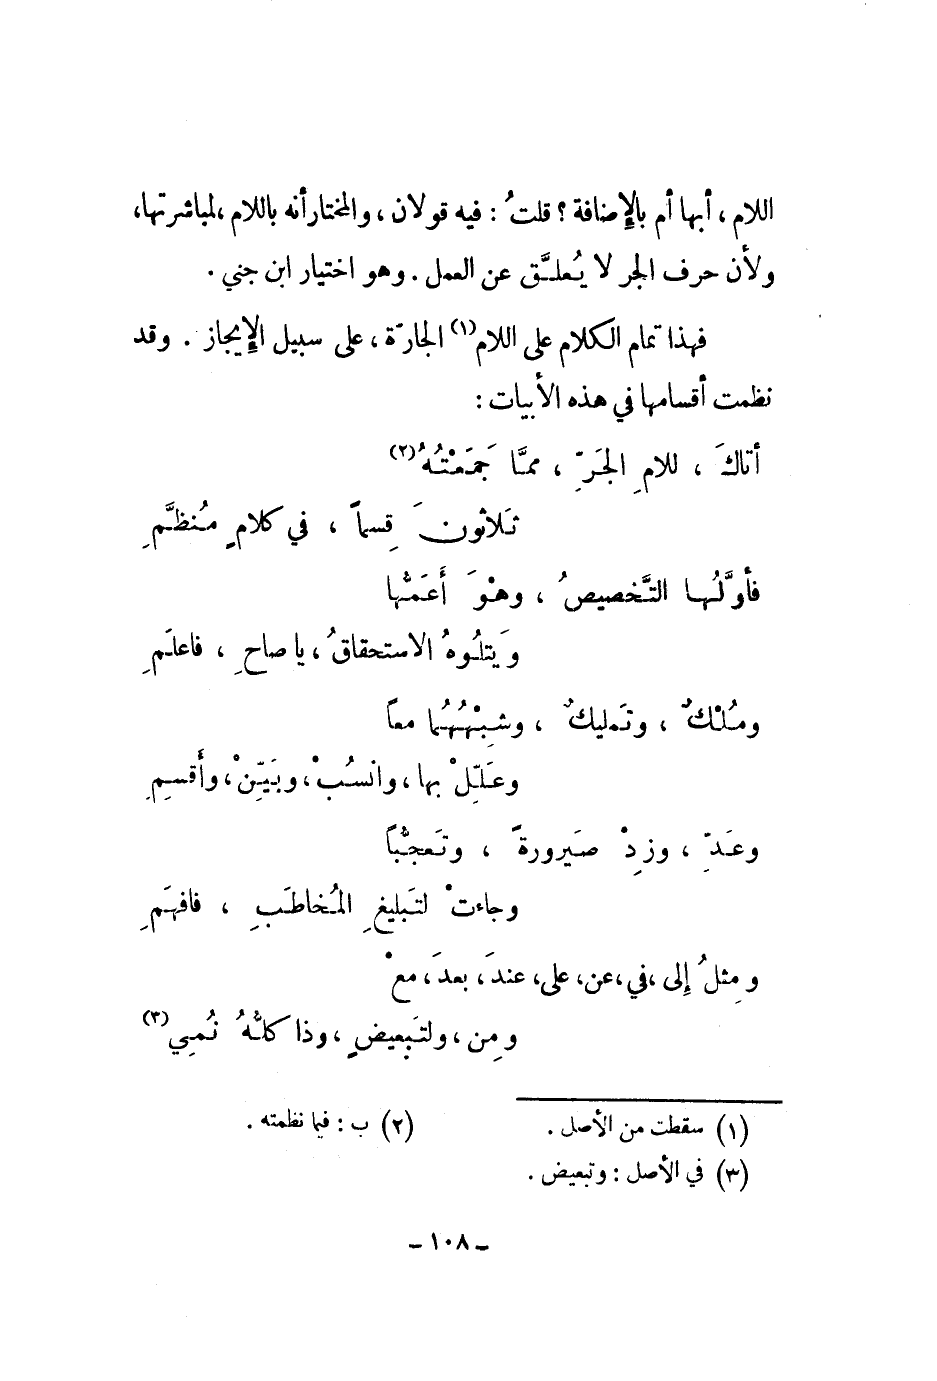 اللام ، أبها أم بالإضافة ؟ قلتُ : فيه قولان ، والمختار أنه باللام ، لمباشرتها،
ولأن حرف الجر لا يُعلَّق عن العمل . وهو اختيار ابن جني .
فهذا تمام الكلام على اللام(١) الجارّة ، على سبيل الإيجاز . وقد
نظمت أقسامها في هذه الأبيات :
أتاكَ ، للامِ الجَرِّ ، ممَّا جَمَعْتُهُ(٢)
ثَلاثونَ قِسماً ، في كلامٍ مُنظَّمِ
فأوَّلُها التَّخصيصُ ، وهْوَ أَعَمُّها
وَيَتلُوهُ الاستحقاقُ ، يا صاحِ ، فاعلَمِ
ومُلْكٌ ، وتَمليكٌ ، وشِبْهُهُما معاً
وعَلِّلْ بها ، وانسُبْ ، وبَيِّنْ ، وأَقسِمِ
وعَدِّ ، وزِدْ صَيرورةً ، وتَعجُّباً
وجاءتْ لتَبليغِ المُخاطَبِ ، فافهَمِ
ومِثلُ إلى ، في ، عن ، على ، عندَ ، بعدَ ، معْ
ومِن ، ولتَبعيضٍ ، وذا كلُّهُ نُمِي(٣)
(١) سقطت من الأصل .
(٢) ب : فيما نظمته .
(٣) في الأصل : وتبعيض .
- ١٠٨ -